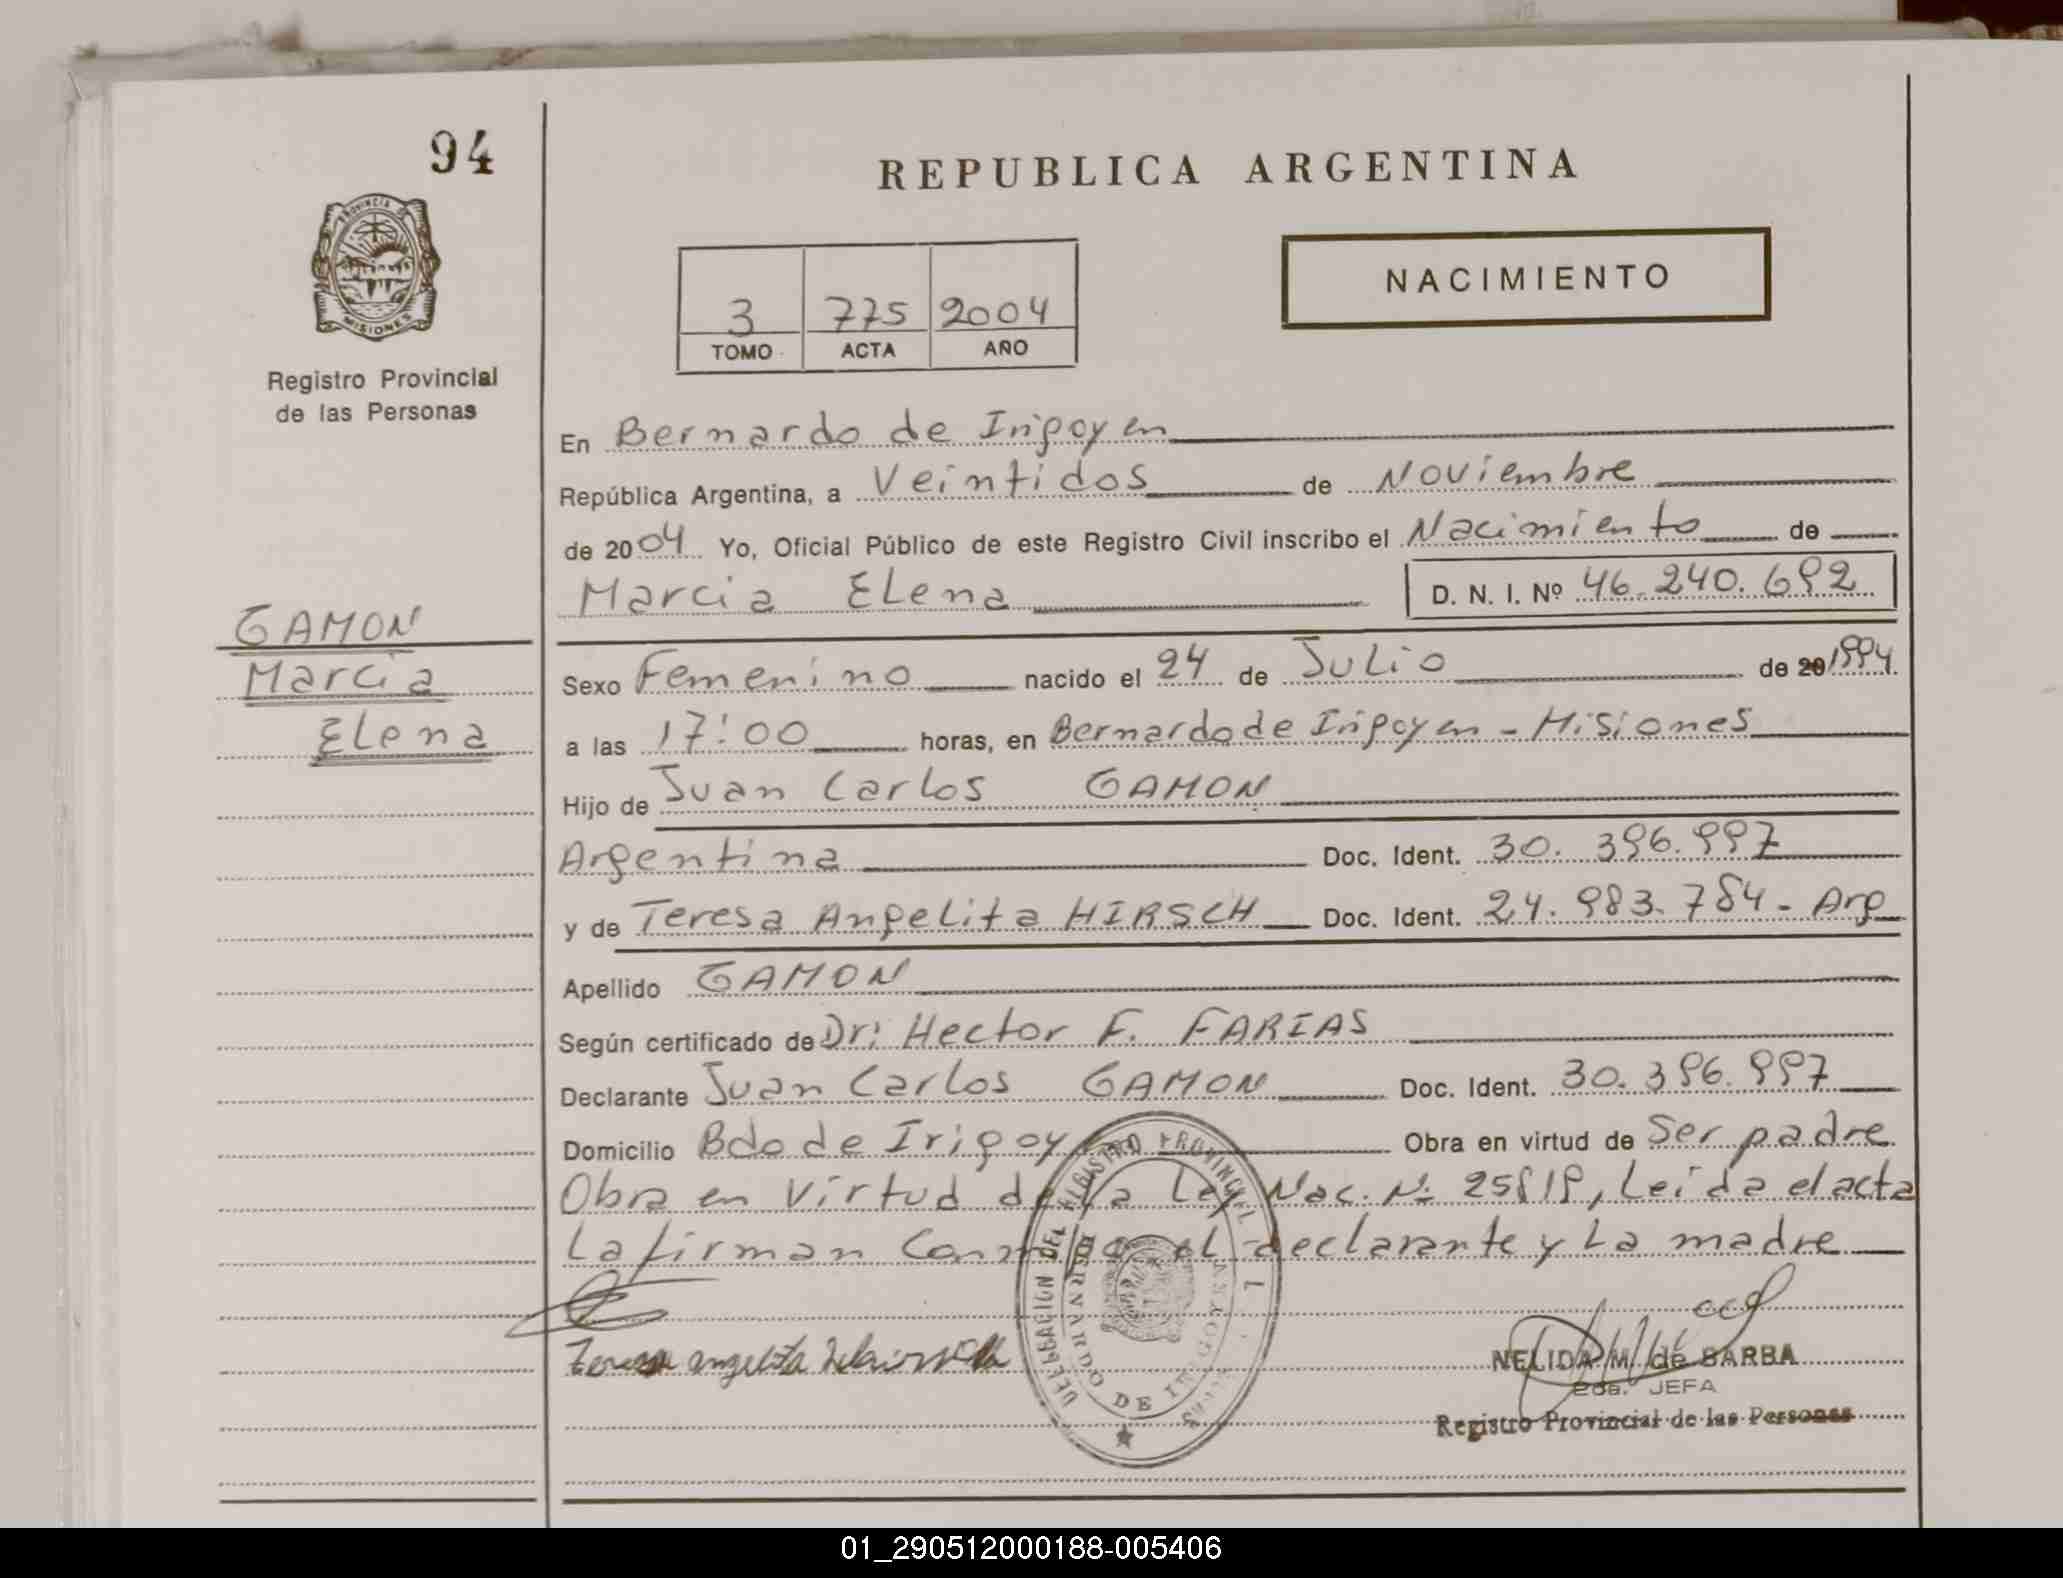 94
REPUBLICA ARGENTINA
PROVINCIA DE
MISIONES
Registro Provincial
de las Personas
NACIMIENTO
3 775 2004
TOMO ACTA AÑO
En Bernardo de Irigoyen
República Argentina, a Veintidos de Noviembre
de 2004 Yo, Oficial Público de este Registro Civil inscribo el Nacimiento de
Marcia Elena D. N. I. Nº 46.240.692
GAMON
Marcia
Elena
Sexo Femenino nacido el 24 de Julio de 20 1994.
a las 17:00 horas, en Bernardo de Irigoyen - Misiones
Hijo de Juan Carlos GAMON
Argentina Doc. Ident. 30. 396.997
y de Teresa Angelita HIRSCH Doc. Ident. 24.983.784 - Arg
Apellido GAMON
Según certificado de Dr: Hector F. FARIAS
Declarante Juan Carlos GAMON Doc. Ident. 30.396.997
Domicilio Bdo de Irigoy Obra en virtud de Ser padre
Obra en Virtud de la Ley Nac. Nº 25819, Leida el acta
La firman Conmigo el declarante y La madre
Teresa angelita
DELEGACION DEL REGISTRO PROVINCIAL
BERNARDO DE IRIGOYEN
NELIDA M. de BARBA
2da. JEFA
Registro Provincial de las Personas
01_290512000188-005406